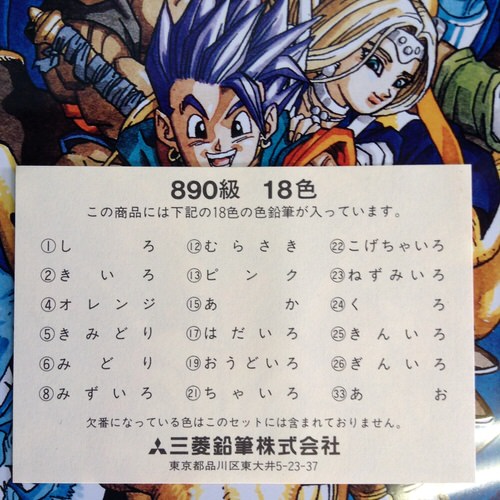 890級 18色
この商品には下記の18色の色鉛筆が入っています。
①しろ ⑫むらさき ㉒こげちゃいろ
②きいろ ⑬ピンク ㉓ねずみいろ
④オレンジ ⑮あか ㉔くろ
⑤きみどり ⑰はだいろ ㉕きんいろ
⑥みどり ⑲おうどいろ ㉖ぎんいろ
⑧みずいろ ㉑ちゃいろ ㉝あお
欠番になっている色はこのセットには含まれておりません。
三菱鉛筆株式会社
東京都品川区東大井5-23-37